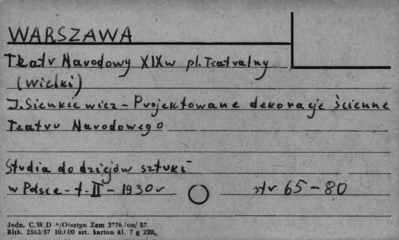 WARSZAWA
Teatr Narodowy XIXw pl. Teatralny
(Wielki)
J. Sienkiewicz - Projektowane dekoracje ścienne
Teatru Narodowego
Studia do dziejów sztuki
w Polsce - t. II - 1930 r str 65-80
Jedn. C.W.D Olsztyn Zam 2776 /on/ 57
Błtk. 2563/57 10.000 szt. karton kl. 7 g 220,